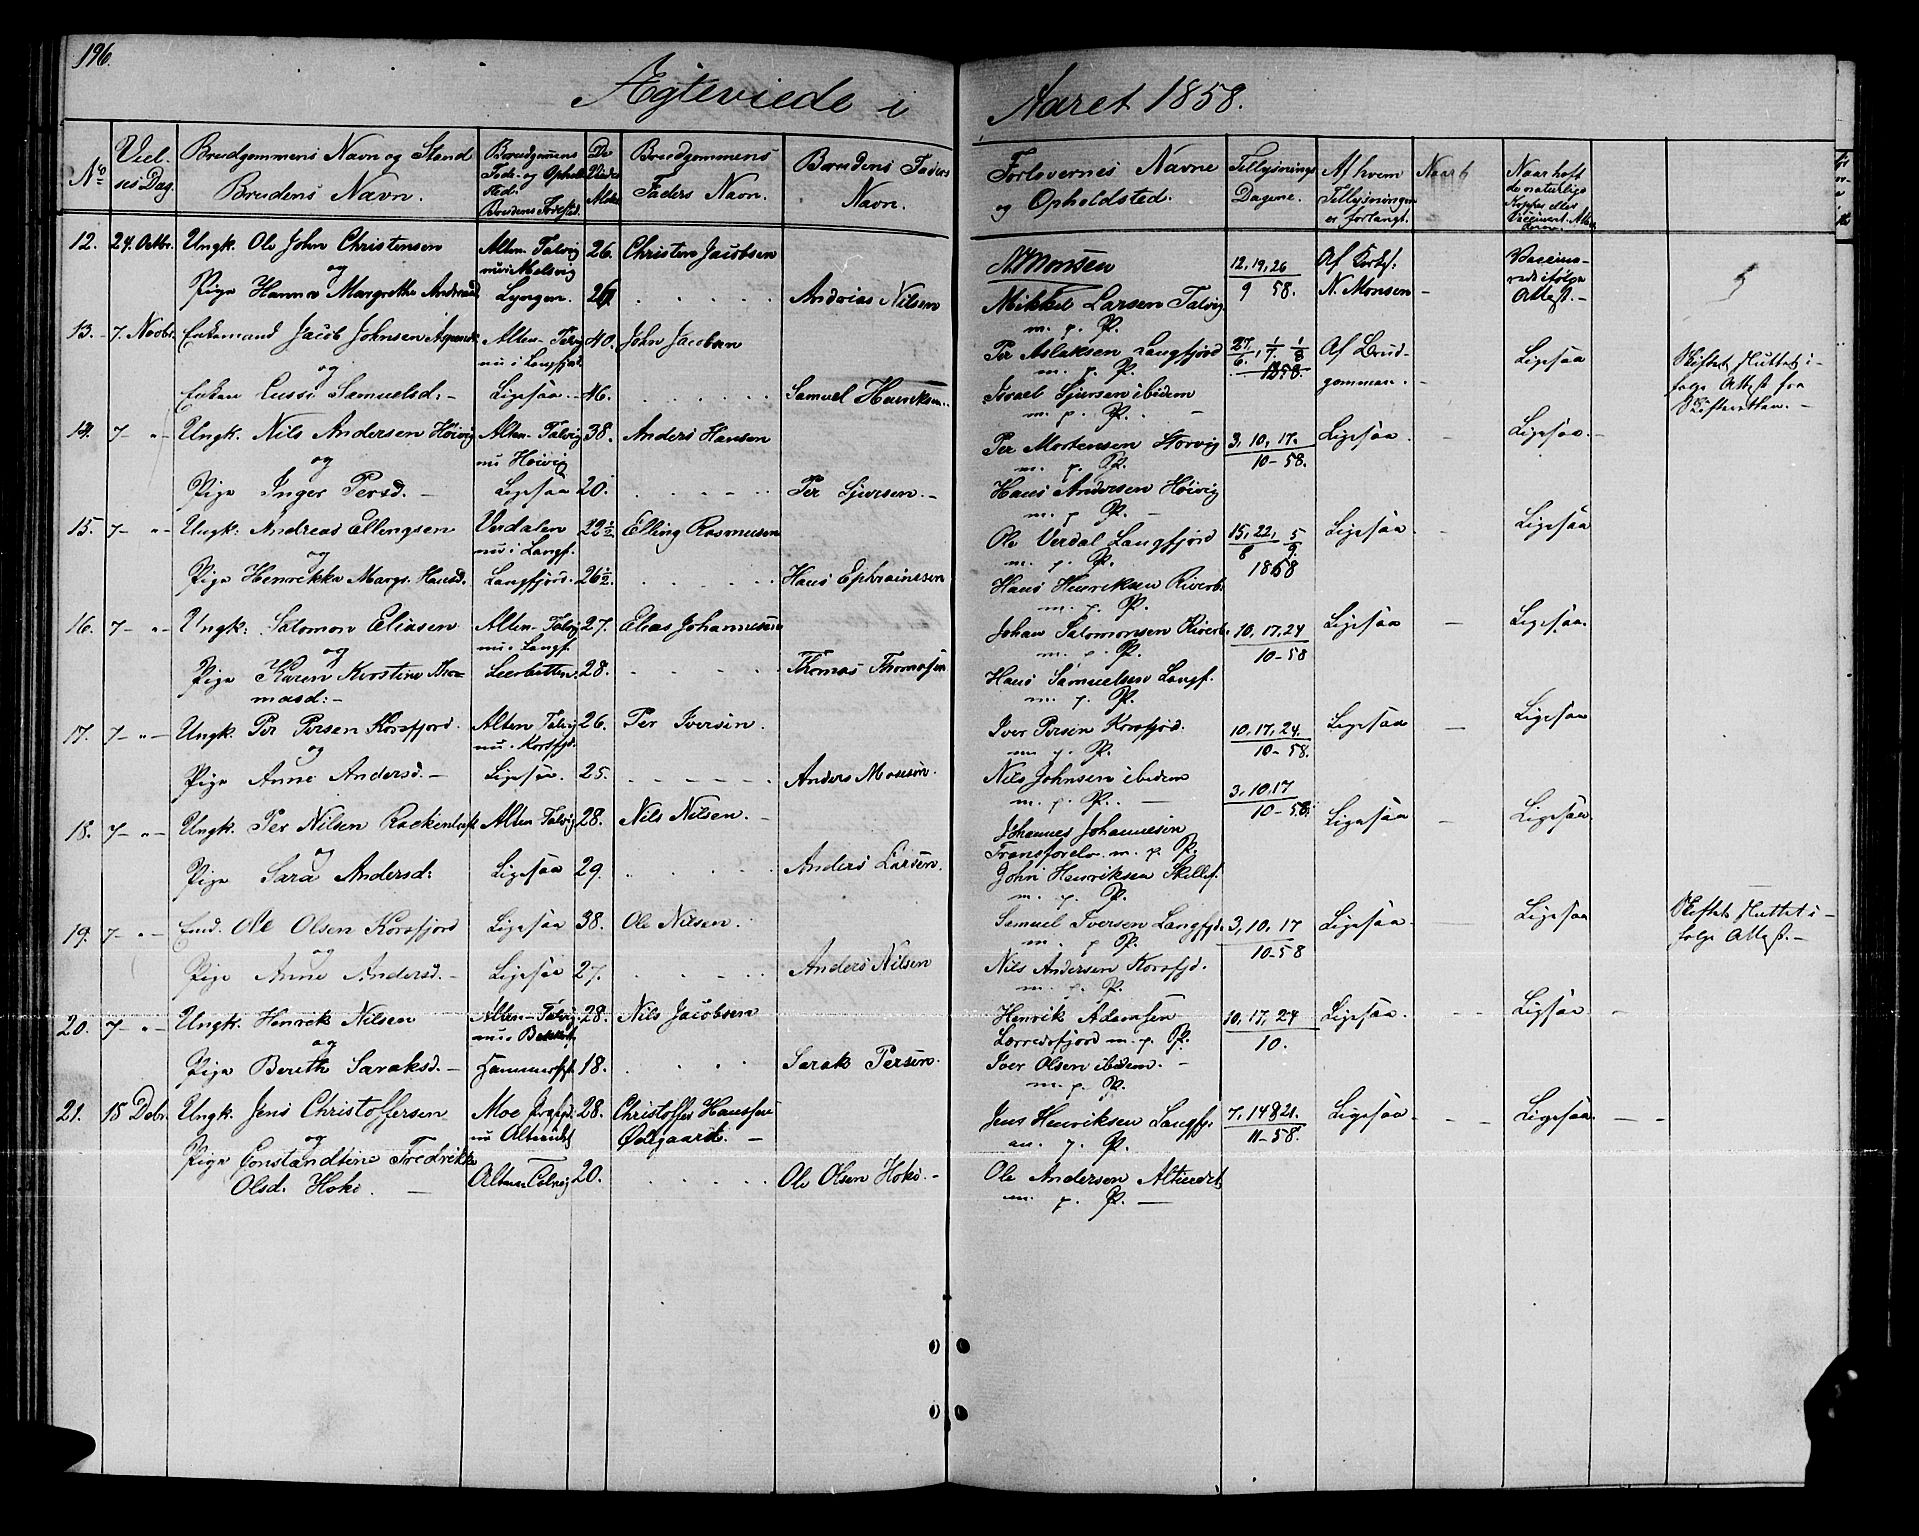 196.
Ægteviede i Aaret 1858.
No
Viel-
ses Dag.
Brudgommens Navn og Stand
Brudens Navn.
Brudgomens
Føde- og Ophold-
sted.
Brudens Fødested.
De
Viedes
Alder
Brudgommens
Faders Navn.
Brudens Faders
Navn.
Forlovernes Navne
og Opholdsted.
Tillysnings
Dagene.
Af hvem
Tillysningen
er forlangt.
Naar
Naar haft
de naturlige
Kopper eller
Vaccinert.
12. 24. Octbr. Ungk. Ole John Christensen Alten-Talvig 26. Christen Jacobsen
og nu i Melsvig
Pige Hanna Margrethe Lyngen. 26 . . . . . Andreas Nilsen
N. Monsen 12, 19, 26 Af Kirkes: Vaccine-
Mikkel Larsen Talvig 9 58. N. Monsen – Attest. –
m. p. P.
13. 7. Novbr. Enkemand Jacob Johnsen Alten-Talvig 40. John Jacobsen
og nu i Langfjord
Enken Lussi Samuelsd: – Ligesaa. 46. . . . . . Samuel Henriksen.
Per Aslaksen Langfjord 27/6, 4/7. 1/8 Af Brud- Ligesaa Skiftet sluttet i-
m. p. P. 1858. gommen. – følge Attest fra
Israel Sjursen ibidem Skifteretten. –
m. p. P. –
14. 7– "– Ungk. Nils Andersen Høivig Alten-Talvig 38. Anders Hansen
og nu Høivig
Pige Inger Persd. – Ligesaa 20. . . . . . Per Sjursen. –
Per Mortensen Storvig 3, 10, 17. Ligesaa. – Ligesaa. –
m. p. P. 10–58.
Hans Andersen Høivig
m. p. P. –
15. 7– "– Ungk: Andreas Ellingsen Verdalen 22½ Elling Rasmusen
og nu i Langf.
Pige Henrikka Margr. Hansd. Langfjord. 26½. . . . . . Hans Ephraimsen
Ole Verdal Langfjord 15, 22, 5 Ligesaa – Ligesaa
m. p. P. 8 9.
Hans Henriksen 1858
m. p. P.
16. 7– "– Ungk: Salomon Eliasen Alten-Talvig 27. Elias Johannesen
og nu i Langf.
Pige Karen Kirstine Tho- 28. . . . . . Thomas Thomasen
masd: –
Johan Salomonsen 10, 17, 24 Ligesaa – Ligesaa.
m. p. P. 10–58
Hans Samuelsen Langf.
m. p. P.
17. 7– "– Ungk. Per Persen Korsfjord. Alten Talvig 26. Per Iversen.
og nu i Korsfjd.
Pige Anne Andersd. – Ligesaa. 25. . . . . . Anders Mosesen.
Iver Persen Korsfjord. 10, 17, 24. Ligesaa – Ligesaa
m. p. P. 10–58.
Nils Johnsen ibidem
m. p. P. –
18. 7– "– Ungk. Per Nilsen Alten Talvig 28. Nils Nilsen. –
og
Pige Sara Andersd: Ligesaa 29. . . . . . Anders Larsen.
3, 10, 17
Johannes Johannesen 10–58. Ligesaa Ligesaa
m. p. P.
John Henriksen
m. p. P.
19. 7– "– Emd. Ole Olsen Korsfjord Ligesaa 38. Ole Nilsen.
og
Pige Anne Andersd. – Ligesaa 27. . . . . . Anders Nilsen
Semuel Iversen Langfjd. 3, 10, 17 Ligesaa. Ligesaa Skiftet sluttet i-
m. p. P. 10–58 følge Attest. –
Nils Andersen Korsfjd.
m. p. P.
20. 7– "– Ungk. Henrik Nilsen Alten-Talvig 28. Nils Jacobsen
og
Pige Berith Saraksd. – Hammerfest 18. . . . . . Sarak Persen.
Henrik Adamsen 10, 17, 24 Ligesaa. – – Ligesaa –
m. p. P. 10.
Iver Olsen ibidem. –
m. p. P.
21. 18 Debr. Ungk. Jens Christoffersen Moe 28. Christoffer Hanssen
og nu Alteidet Østgaard. –
Pige Constandtine Fredrikke Alten Talvig 20. . . . . . Ole Olsen Hoki. –
Olsd. Hoki. –
Jens Henriksen Langfj. 7, 14 & 21. Ligesaa. – – Ligesaa. – –
m. p. P. 11–58.
Ole Andersen Alteidet
m. p. P. –